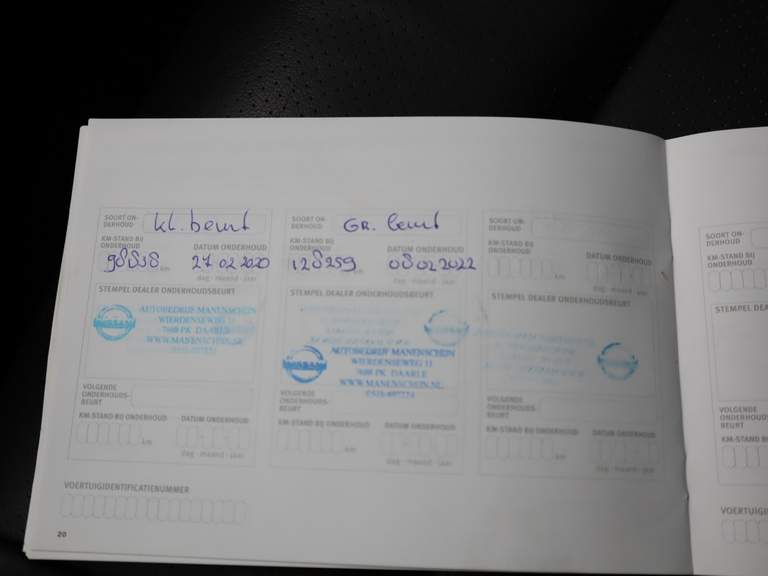 SOORT ON-
DERHOUD
Kl. beurt
KM-STAND BIJ
ONDERHOUD
DATUM ONDERHOUD
km
27 02 2020
dag - maand - jaar
STEMPEL DEALER ONDERHOUDSBEURT
NISSAN
AUTOBEDRIJF MANENSCHIJN
WIERDENSEWEG 11
7688 PK DAARLE
WWW.MANENSCHIJN.NL
VOLGENDE
ONDERHOUDS-
BEURT
KM-STAND BIJ ONDERHOUD
DATUM ONDERHOUD
km
dag - maand - jaar
VOERTUIGIDENTIFICATIENUMMER
20
SOORT ON-
DERHOUD
GR. beurt
KM-STAND BIJ
ONDERHOUD
DATUM ONDERHOUD
128259
km
08 02 2022
dag - maand - jaar
STEMPEL DEALER ONDERHOUDSBEURT
NISSAN
AUTOBEDRIJF MANENSCHIJN
WIERDENSEWEG 11
7688 PK DAARLE
WWW.MANENSCHIJN.NL
VOLGENDE
ONDERHOUDS-
BEURT
KM-STAND BIJ ONDERHOUD
DATUM ONDERHOUD
km
dag - maand - jaar
SOORT ON-
DERHOUD
KM-STAND BIJ
ONDERHOUD
DATUM ONDERHOUD
km
dag - maand - jaar
STEMPEL DEALER ONDERHOUDSBEURT
VOLGENDE
ONDERHOUDS-
BEURT
KM-STAND BIJ ONDERHOUD
DATUM ONDERHOUD
km
dag - maand - jaar
SOORT ON-
DERHOUD
KM-STAND BIJ
ONDERHOUD
STEMPEL DEA
VOLGENDE
ONDERHOUD
BEURT
KM-STAND BIJ
VOERTUIGI